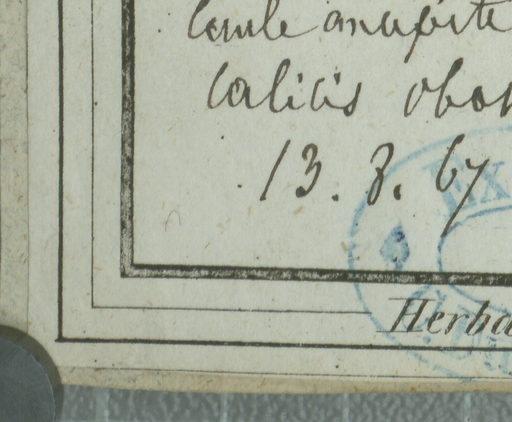 Caule ancipite
Calicis obov
13. 8. 67
Ex
Herba